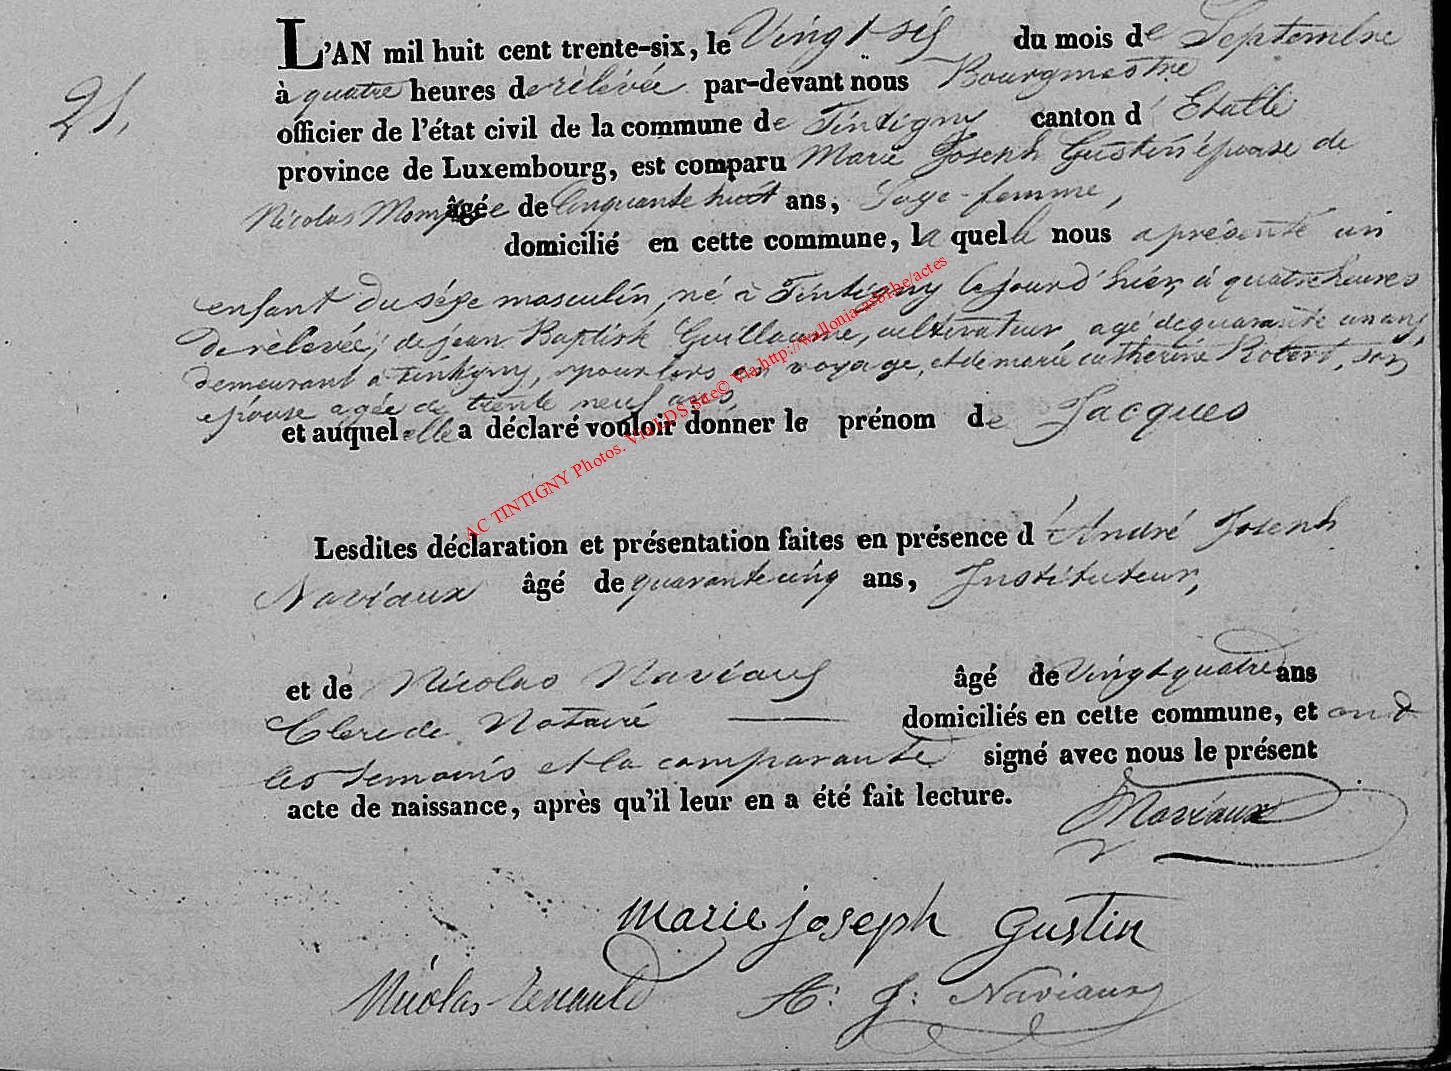 21.
L'AN mil huit cent trente-six, le Vingt-six du mois de Septembre
à quatre heures de rèlévée par-devant nous Bourgmestre
officier de l'état civil de la commune de Tintigny canton d'Etalle
province de Luxembourg, est comparu Marie Joseph Gustin épouse de
Nicolas âgé de Cinquante huit ans, Sage-femme,
domicilié en cette commune, la quelle nous a présenté un
enfant du séxe masculin, né à Tintigny le jour d'hier, à quatre heures
de rèlevée, de jean Baptiste Guillaume, cultivateur, agé de quarante un ans,
demeurant à Tintigny, pour lors en voyage, et de marie catherine Robert, son
epouse agée de trente neuf ans,
et auquel elle a déclaré vouloir donner le prénom de Jacques
AC TINTIGNY Photos. Via LDS Sae© Via http://wallonia-asbl.be/actes
Lesdites déclaration et présentation faites en présence d'André Joseph
Naviaux âgé de quarante cinq ans, Instituteur,
et de Nicolas Naviaux âgé de Vingt quatre ans
Clerc de Notaire domiciliés en cette commune, et ont
les temoins et la comparante signé avec nous le présent
acte de naissance, après qu'il leur en a été fait lecture.
Naviaux
Marie joseph Gustin
Nicolas A: J: Naviaux